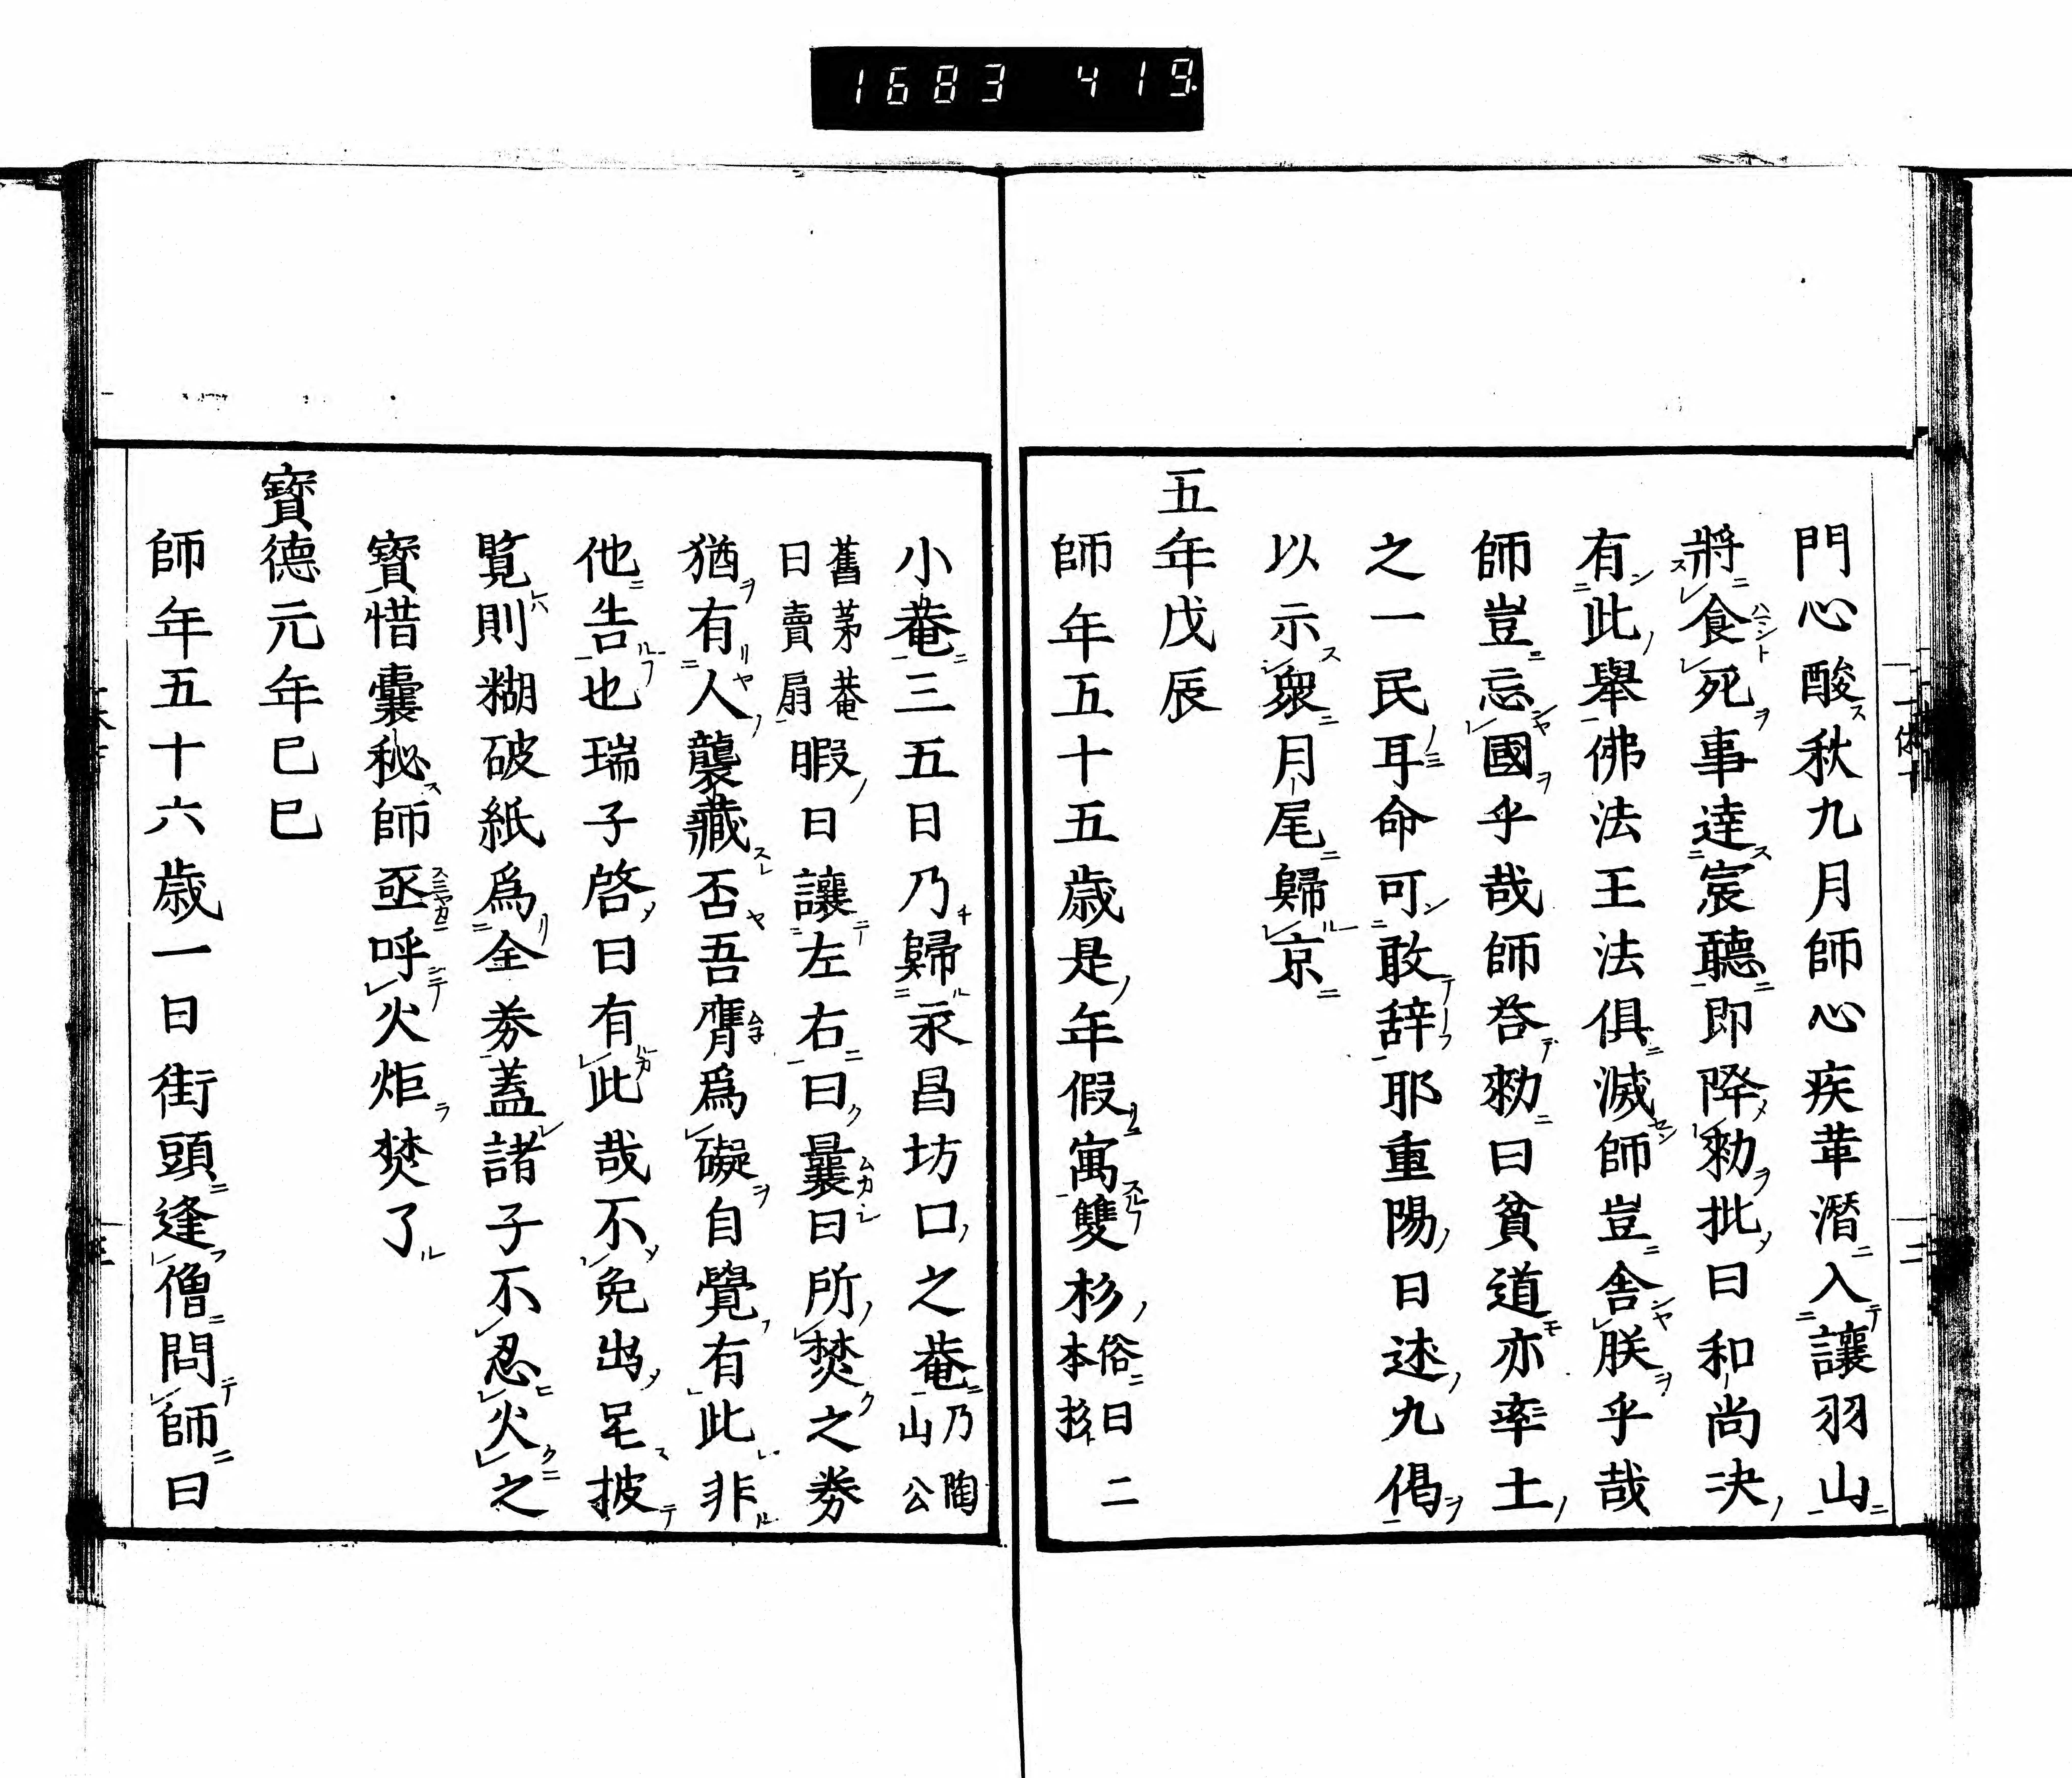 1683 419
門心酸秋九月師心疾革潛入讓羽山
將食死事達宸聽即降勅批曰和尚決
有此舉佛法王法俱滅師豈舍朕乎哉
師豈忘國乎哉師答勅曰貧道亦率土
之一民耳命可敢辞耶重陽日述九偈
以示衆月尾歸京
五年戊辰
師年五十五歳是年假寓雙杉俗曰二本杉
小菴三五日乃歸永昌坊口之菴乃陶山公
舊茅菴曰賣扇暇日讓左右曰曩曰所焚之券
猶有人襲藏否吾膺爲礙自覺有此非
他告也瑞子啓曰有此哉不免出呈披
覧則糊破紙爲全券蓋諸子不忍火之
寳惜囊秘師亟呼火炬焚了
寳德元年己巳
師年五十六歳一日街頭逢僧問師曰